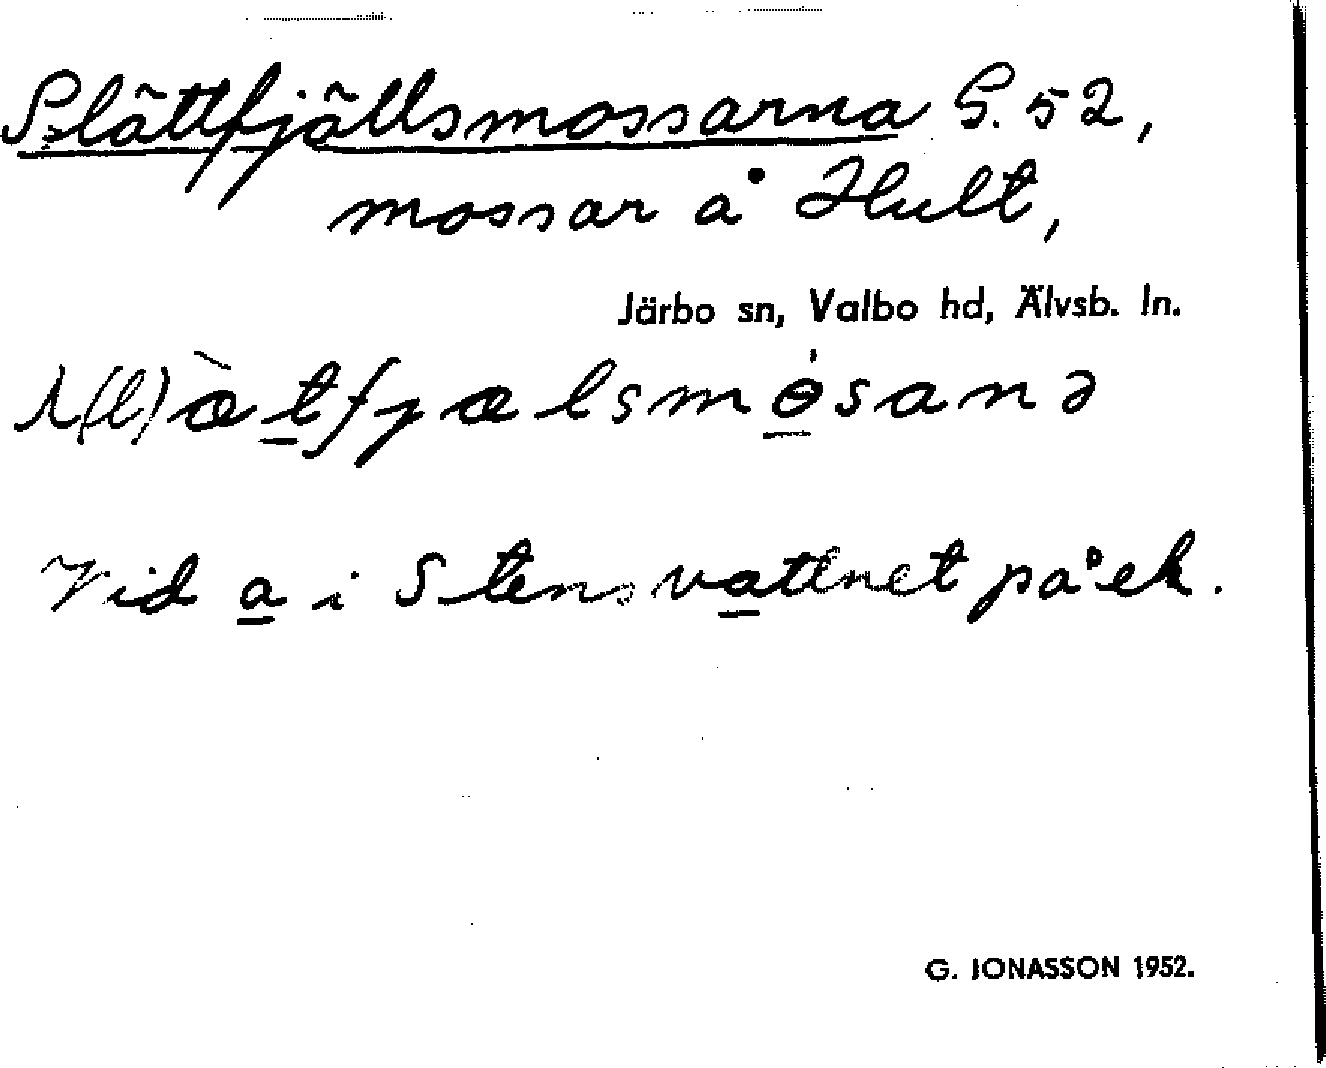 Slättfjällsmossarna S. 52,
mossar å Hult,
Järbo sn, Valbo hd, Älvsb. ln.
s(l)æ̀tfjælsmósanə
Vid a i Stensvattnet på ek.
G. JONASSON 1952.